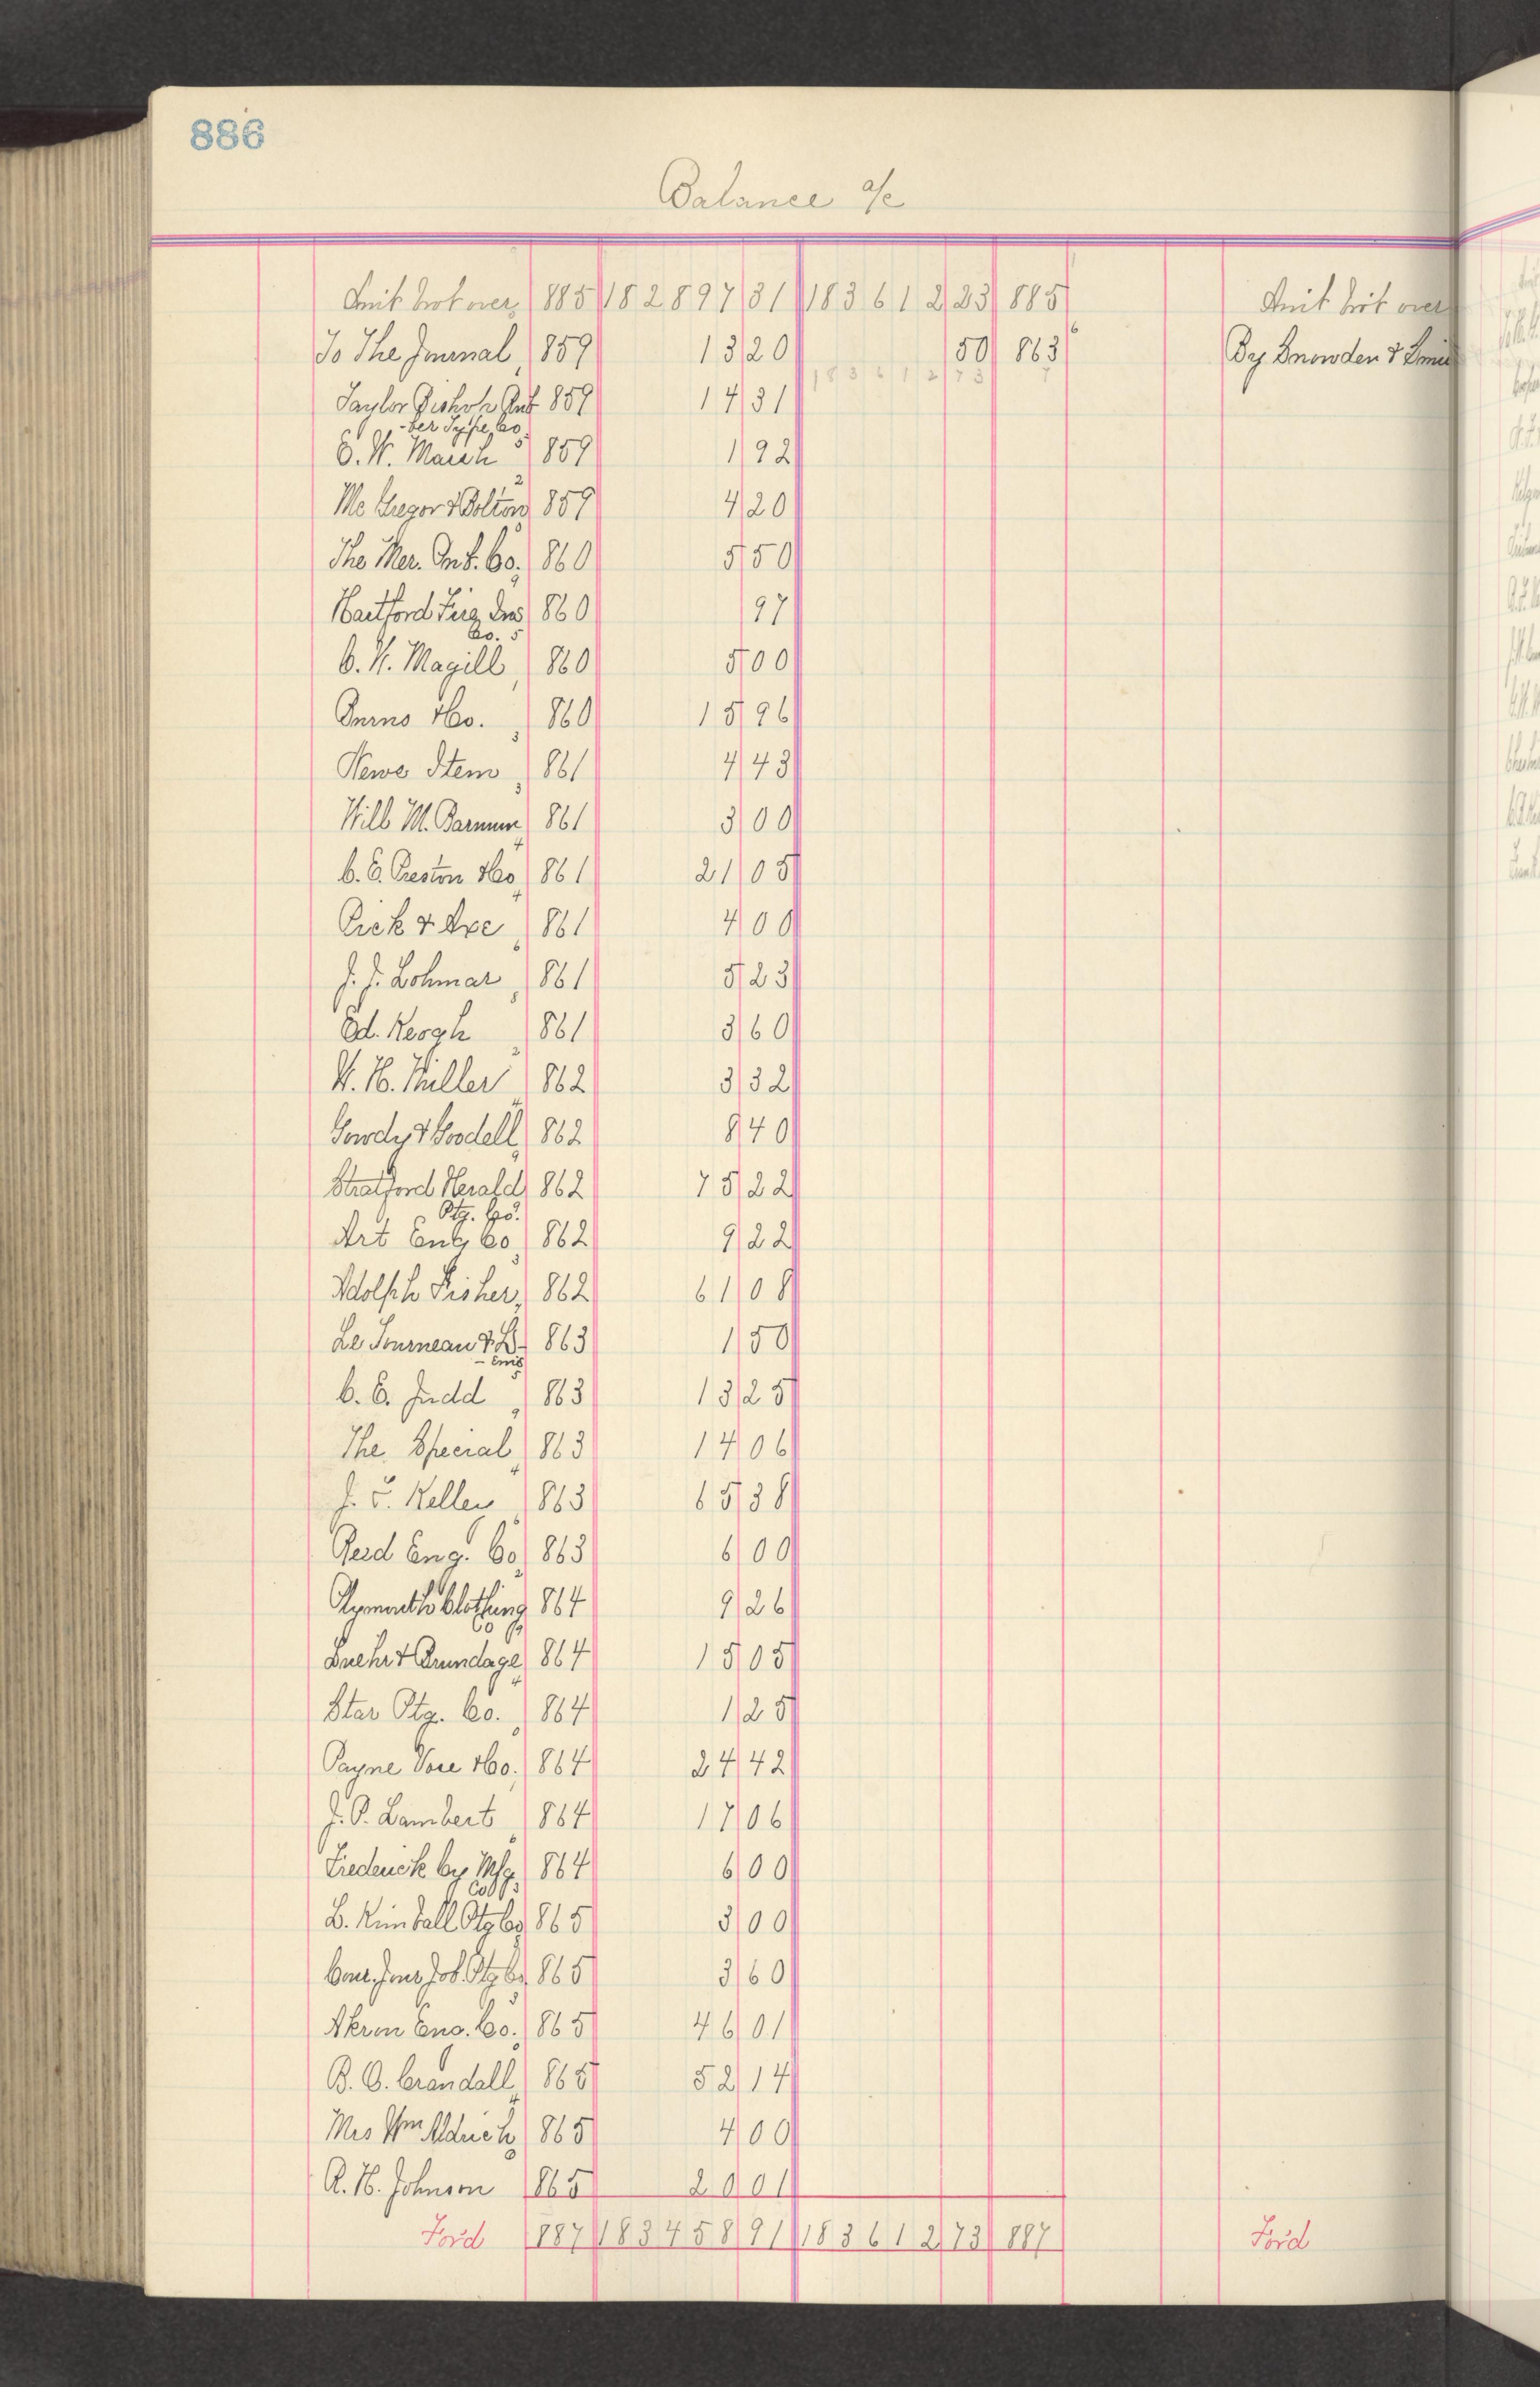 886
Balance a/c
Amt brot over 885 182897 31 183612 23 885 Amt brot over
To The Journal 859 13 20 50 863 By Snowden &
183612 73
Taylor Rub 859 14 31
-ber Type Co
E. W. March 859 1 92
Mc Gregor & Bolton 859 4 20
The Mer. Co. 860 5 50
Hartford Ins 860 97
Co.
C. H. Magill 860 5 00
Burns & Co. 860 15 96
News Item 861 4 43
Will M. Barnum 861 3 00
C. E. Preston & Co 861 21 05
Pick & Axe 861 4 00
J. F. Lohmar 861 5 23
Ed. Keogh 861 3 60
W. H. Miller 862 3 32
Gowdy & Goodell 862 8 40
Stratford Herald 862 75 22
Ptg. Co.
Art Eng Co 862 9 22
Adolph Fisher 862 61 08
Le Tourneau & 863 1 50
C. E. Judd 863 13 25
The Special 863 14 06
J. F. Keller 863 65 38
Reid Eng. Co 863 6 00
Plymouth Clothing 864 9 26
Co
Buehr & Brundage 864 15 05
Star Ptg. Co. 864 1 25
Payne Vose & Co. 864 24 42
J. P. Lambert 864 17 06
Frederick Cy Mfg. 864 6 00
Co
B. Kimball Ptg Co 865 3 00
Job Ptg Co 865 3 60
Akron Eng. Co. 865 46 01
B. O. Crandall 865 52 14
Mrs Wm Aldrich 865 4 00
R. H. Johnson 865 20 01
Ford 887 183458 91 183612 73 887 Ford